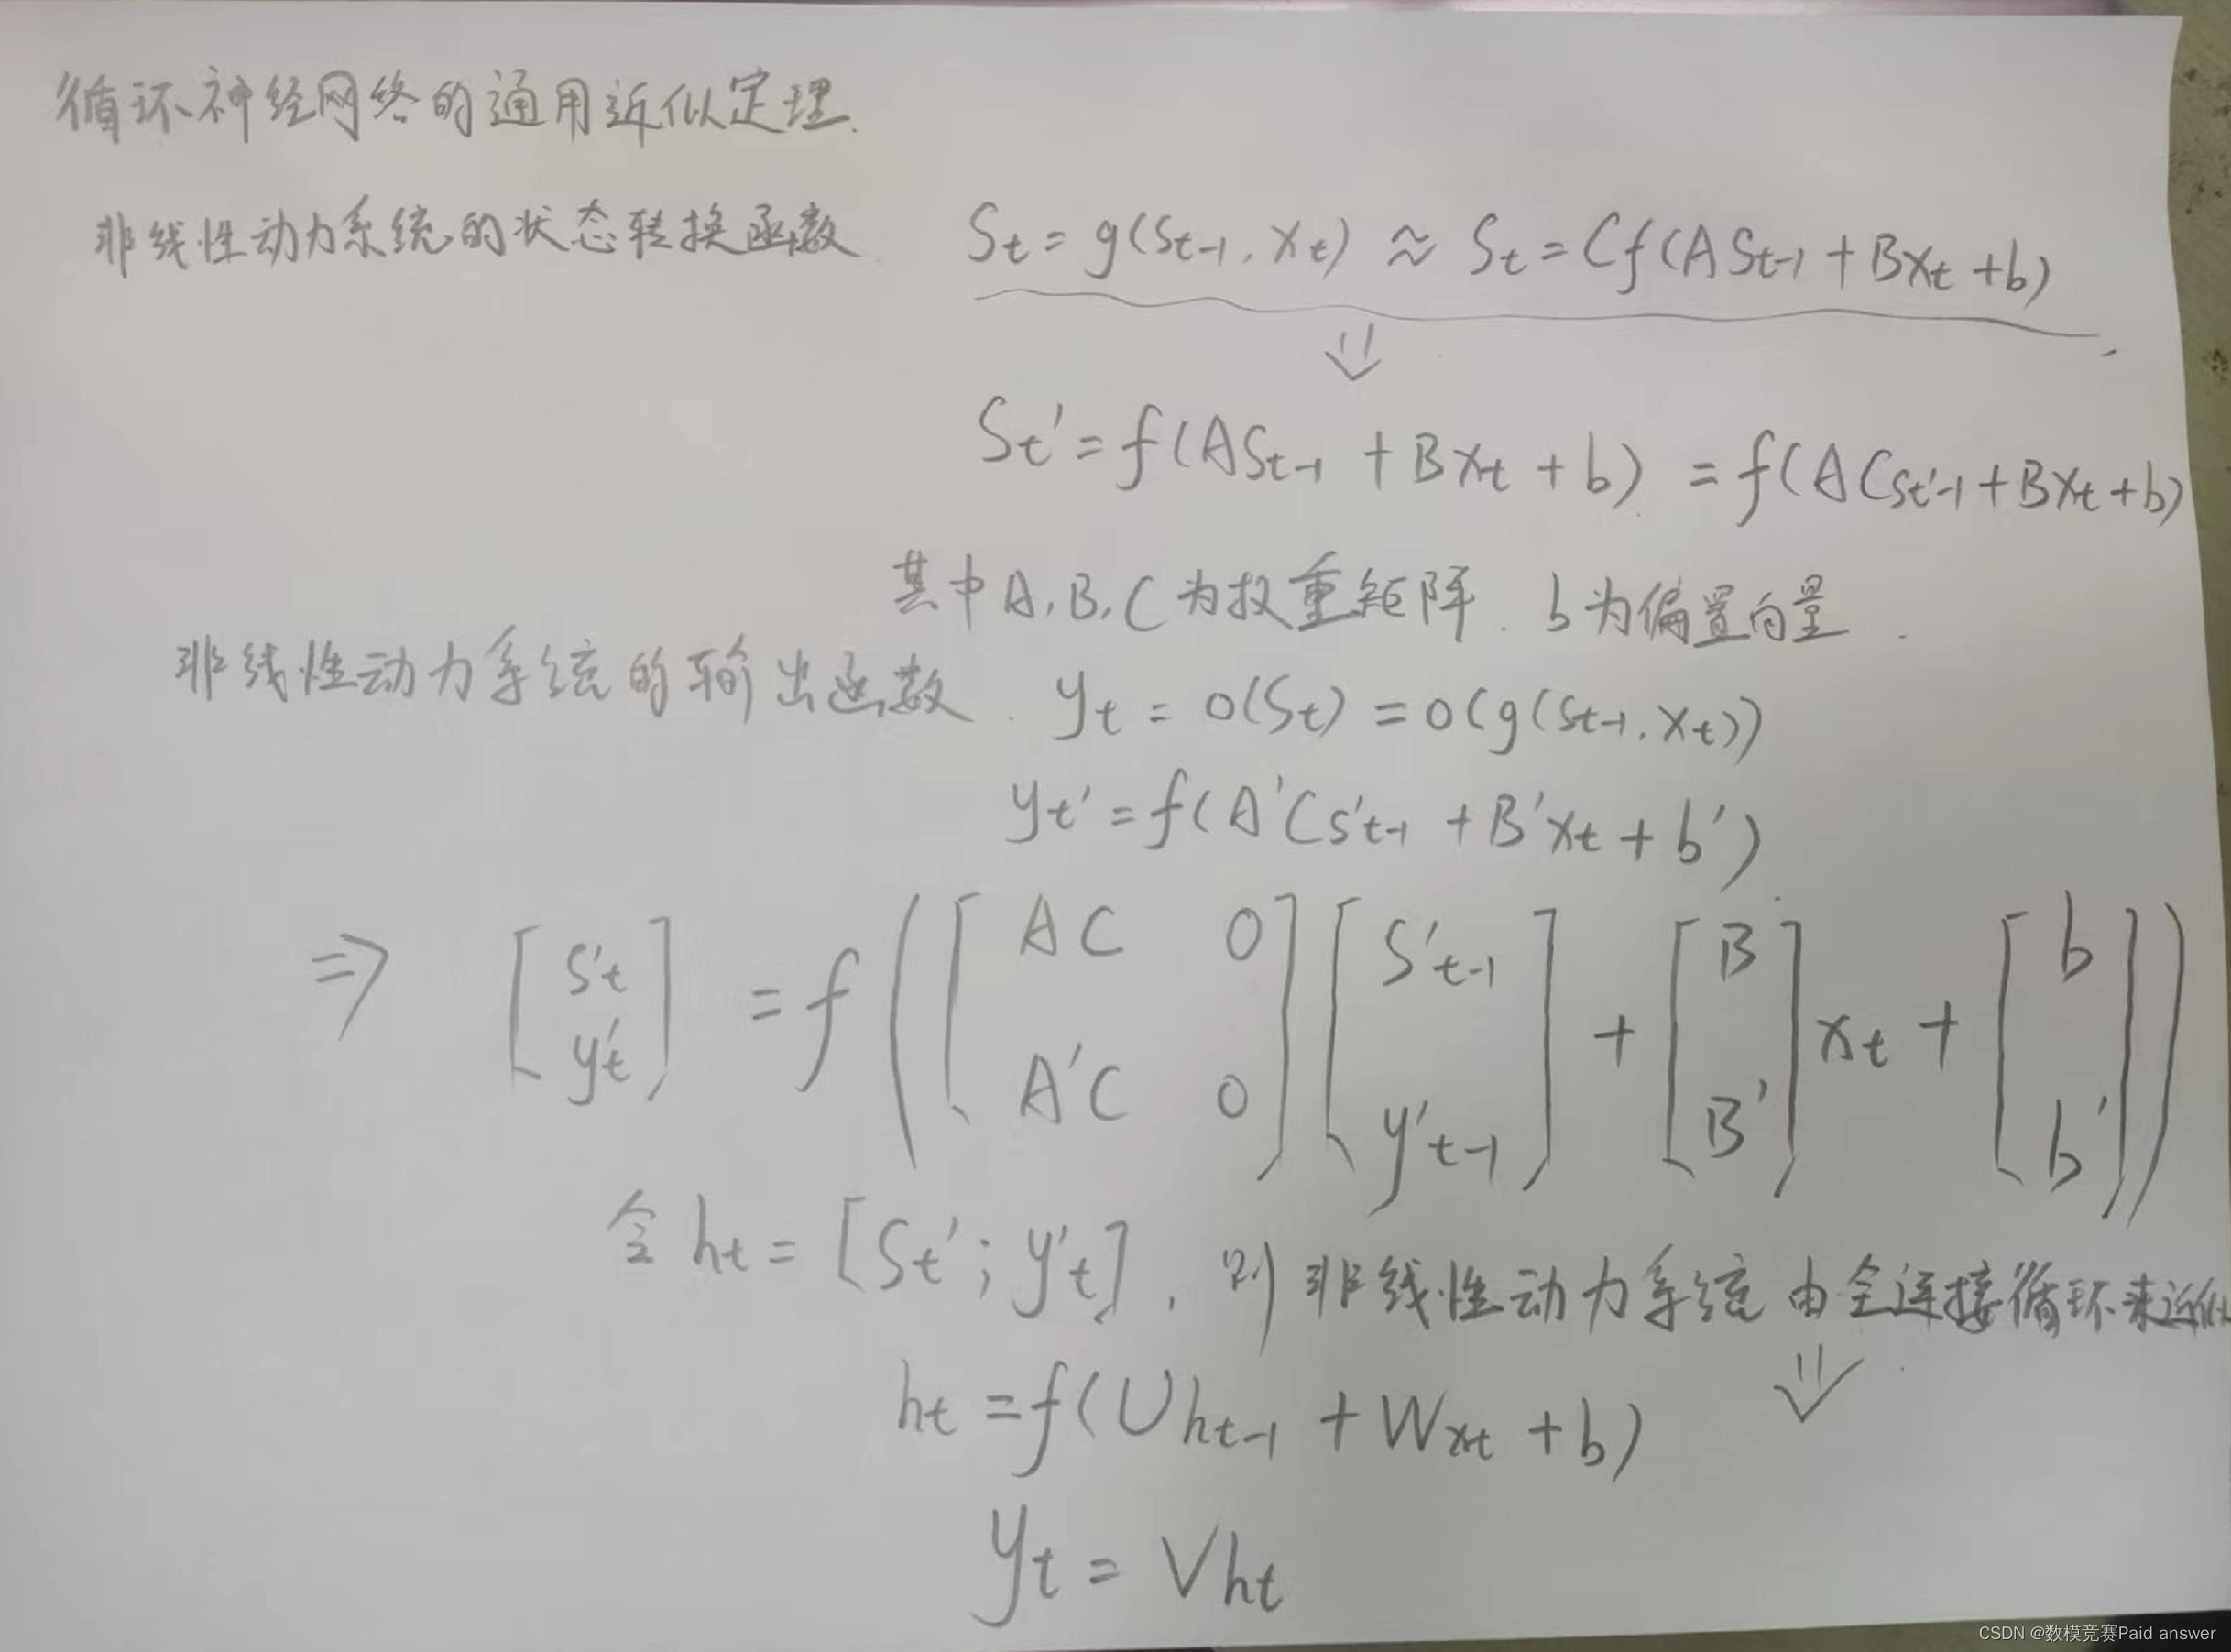 循环神经网络的通用近似定理.
非线性动力系统的状态转换函数 St = g(St-1, xt) ≈ St = Cf(ASt-1 + Bxt + b)
⇓
St' = f(ASt-1 + Bxt + b) = f(ACSt'-1 + Bxt + b)
其中A, B, C为权重矩阵. b为偏置向量.
非线性动力系统的输出函数. yt = o(St) = o(g(St-1, xt))
yt' = f(A'Cs't-1 + B'xt + b')
⇒ [s't y't] = f([AC 0 A'C 0] [s't-1 y't-1] + [B B'] xt + [b b'])
令 ht = [St'; y't], 则非线性动力系统由全连接循环来近似
⇓
ht = f(Uht-1 + Wxt + b)
yt = Vht
CSDN @数模竞赛Paid answer